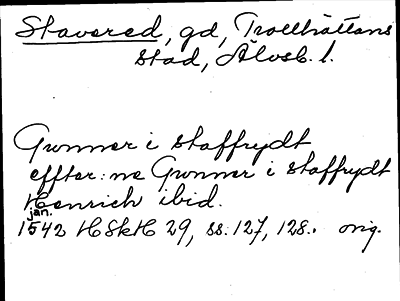 Stavered, gd, Trollhättans
stad, Älvsb. l.
Gunnar i staffrydt
effter:ne Gunnar i staffrydt
Henrich ibid.
jan.
1542 HSkH 29, ss. 127, 128. orig.